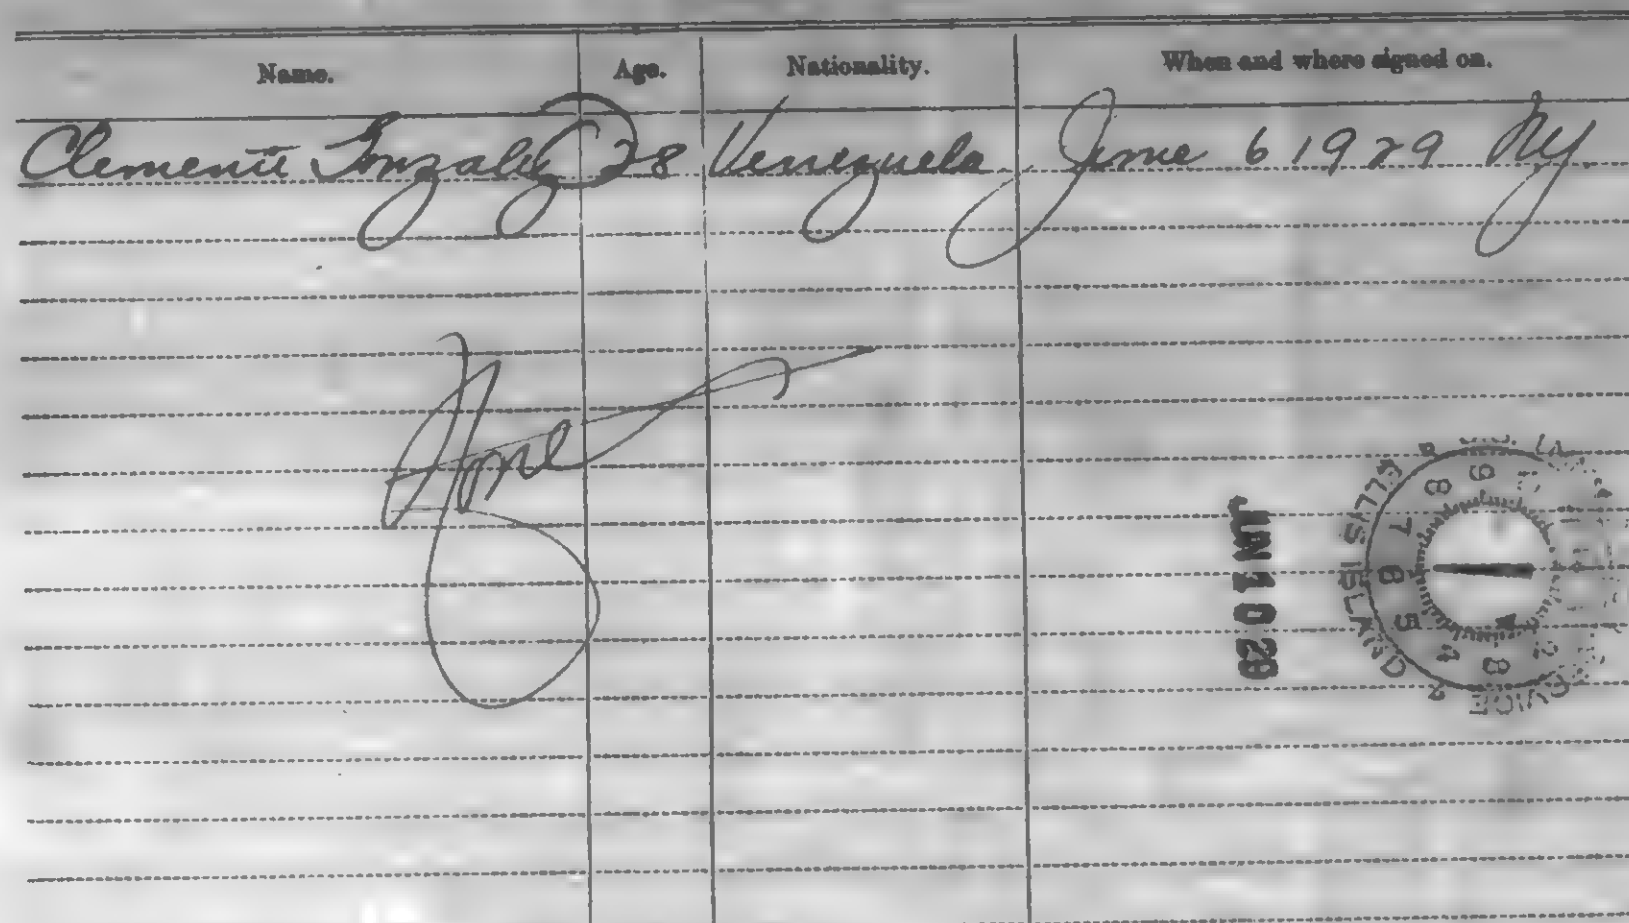 Name. Age. Nationality. When and where signed on.
Clemente Gonzalez 28 Venezuela June 6 1929 NY.
JUN 10 29
ELLIS ISLAND
9 8 7 6 5 4 3 2